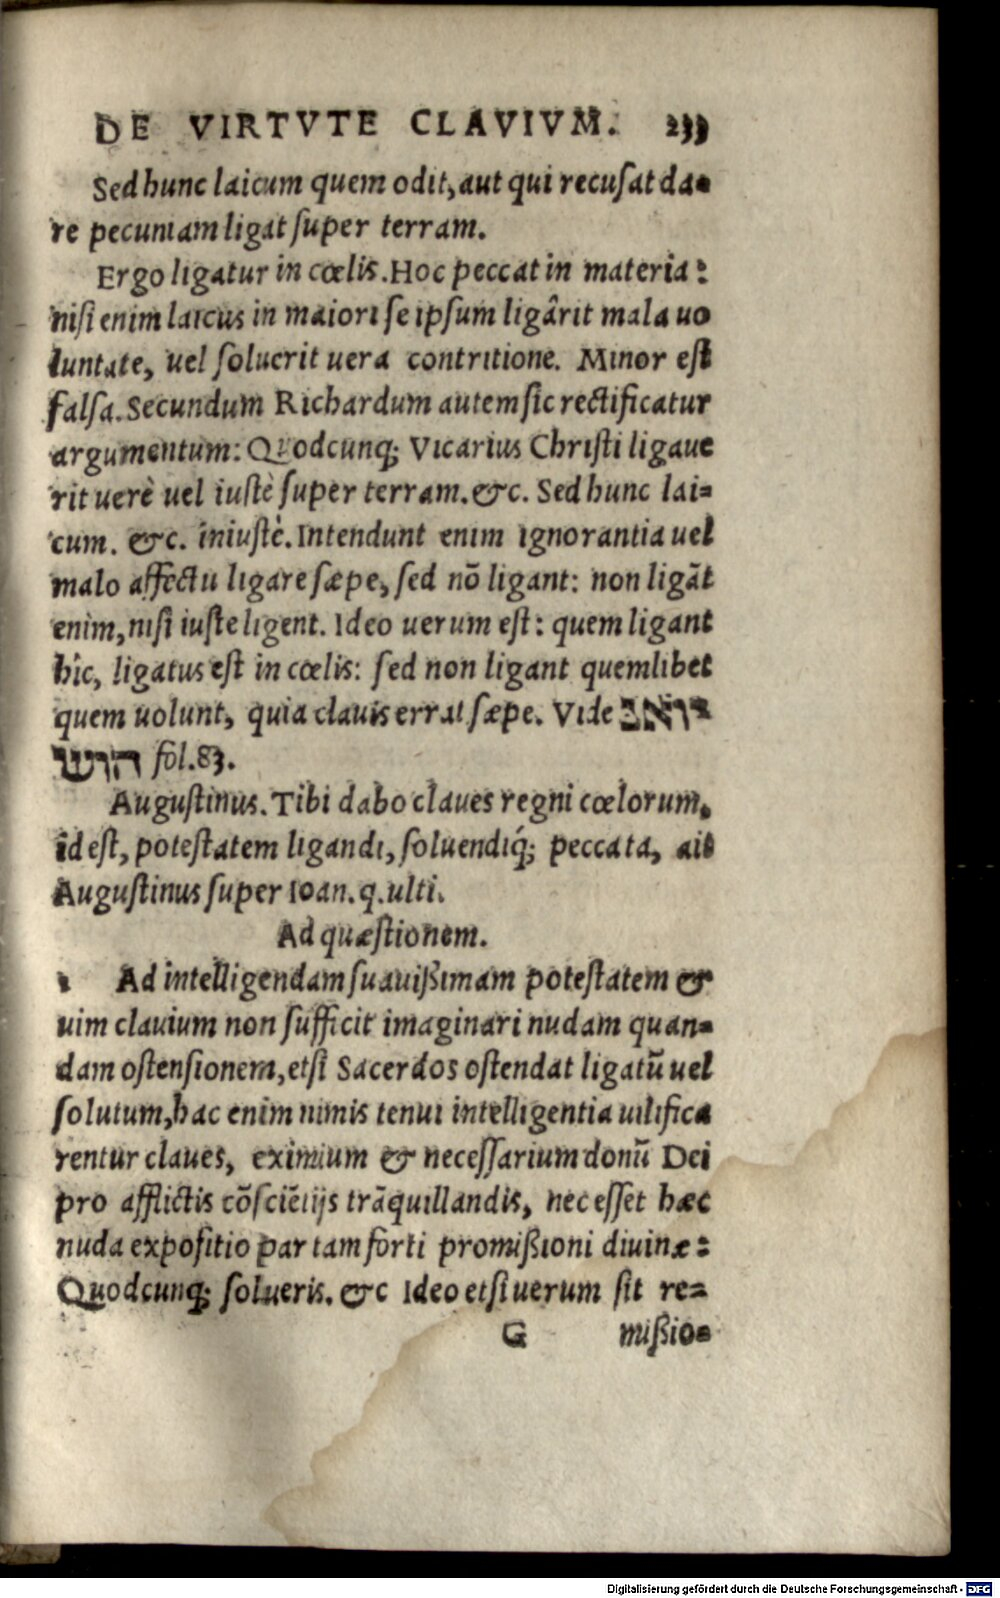 DE VIRTVTE CLAVIVM. 233
Sed hunc laicum quem odit, aut qui recusat da-
re pecuniam ligat super terram.
Ergo ligatur in cœlis. Hoc peccat in materia:
nisi enim laicus in maiori se ipsum ligârit mala uo
luntate, uel soluerit uera contritione. Minor est
falsa. Secundum Richardum autem sic rectificatur
argumentum: Quodcunq; Vicarius Christi ligaue
rit uerè uel iustè super terram. &c. Sed hunc lai-
cum. &c. iniustè. Intendunt enim ignorantia uel
malo affectu ligare sæpe, sed nō ligant: non ligāt
enim, nisi iuste ligent. Ideo uerum est: quem ligant
hîc, ligatus est in cœlis: sed non ligant quemlibet
quem uolunt, quia clauis errat sæpe. Vide
fol. 83.
Augustinus. Tibi dabo claves regni cœlorum,
id est, potestatem ligandi, soluendiq́; peccata, ait
Augustinus super Ioan. q. ulti.
Ad quæstionem.
1 Ad intelligendam suauißimam potestatem &
uim clauium non sufficit imaginari nudam quan-
dam ostensionem, etsi Sacerdos ostendat ligatū uel
solutum, hac enim nimis tenui intelligentia uilifica
rentur claues, eximium & necessarium donū Dei
pro afflictis cōsciētijs trāquillandis, nec esset hæc
nuda expositio par tam forti promißioni diuinæ:
Quodcunq; solueris. &c Ideo etsi uerum sit re-
G mißio-
Digitalisierung gefördert durch die Deutsche Forschungsgemeinschaft - DFG